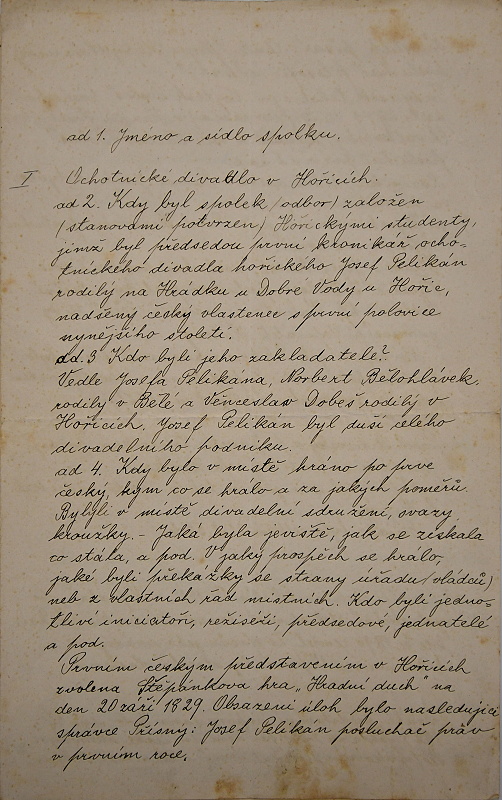 ad 1. Jméno a sídlo spolku.
I Ochotnické divadlo v Hořicích.
ad 2. Kdy byl spolek (odbor) založen
(stanovami potvrzen) Hořickými studenty,
jimž byl předsedou první kronikář ocho-
tnického divadla hořického Josef Pelikán
rodilý na Hrádku u Dobré Vody u Hořic,
nadšený český vlastenec s první polovice
nynějšího století.
ad. 3 Kdo byli jeho zakladatelé?
Vedle Josefa Pelikána, Norbert Bělohlávek,
rodilý v Bělé a Vènceslav Dobeš rodilý v
Hořicích. Josef Pelikán byl duší celého
divadelního podniku.
ad 4. Kdy bylo v místě hráno po prve
český, kým co se hrálo a za jakých poměrů.
Byly-li v místě divadelní sdružení, svazy
kroužky. - Jaká byla jeviště, jak se získala
co stála, a pod. V jaký prospěch se hrálo,
jaké byli překážky se strany úřadu (vládců)
neb z vlastních řad místních. Kdo byli jedno-
tliví iniciatoři, režiséři, předsedové, jednatelé
a pod.
Prvním českým představením v Hořicích
zvolena Štěpánkova hra „Hradní duch" na
den 20 září 1829. Obsazení úloh bylo následující
správce Přísný: Josef Pelikán posluchač práv
v prvním roce.